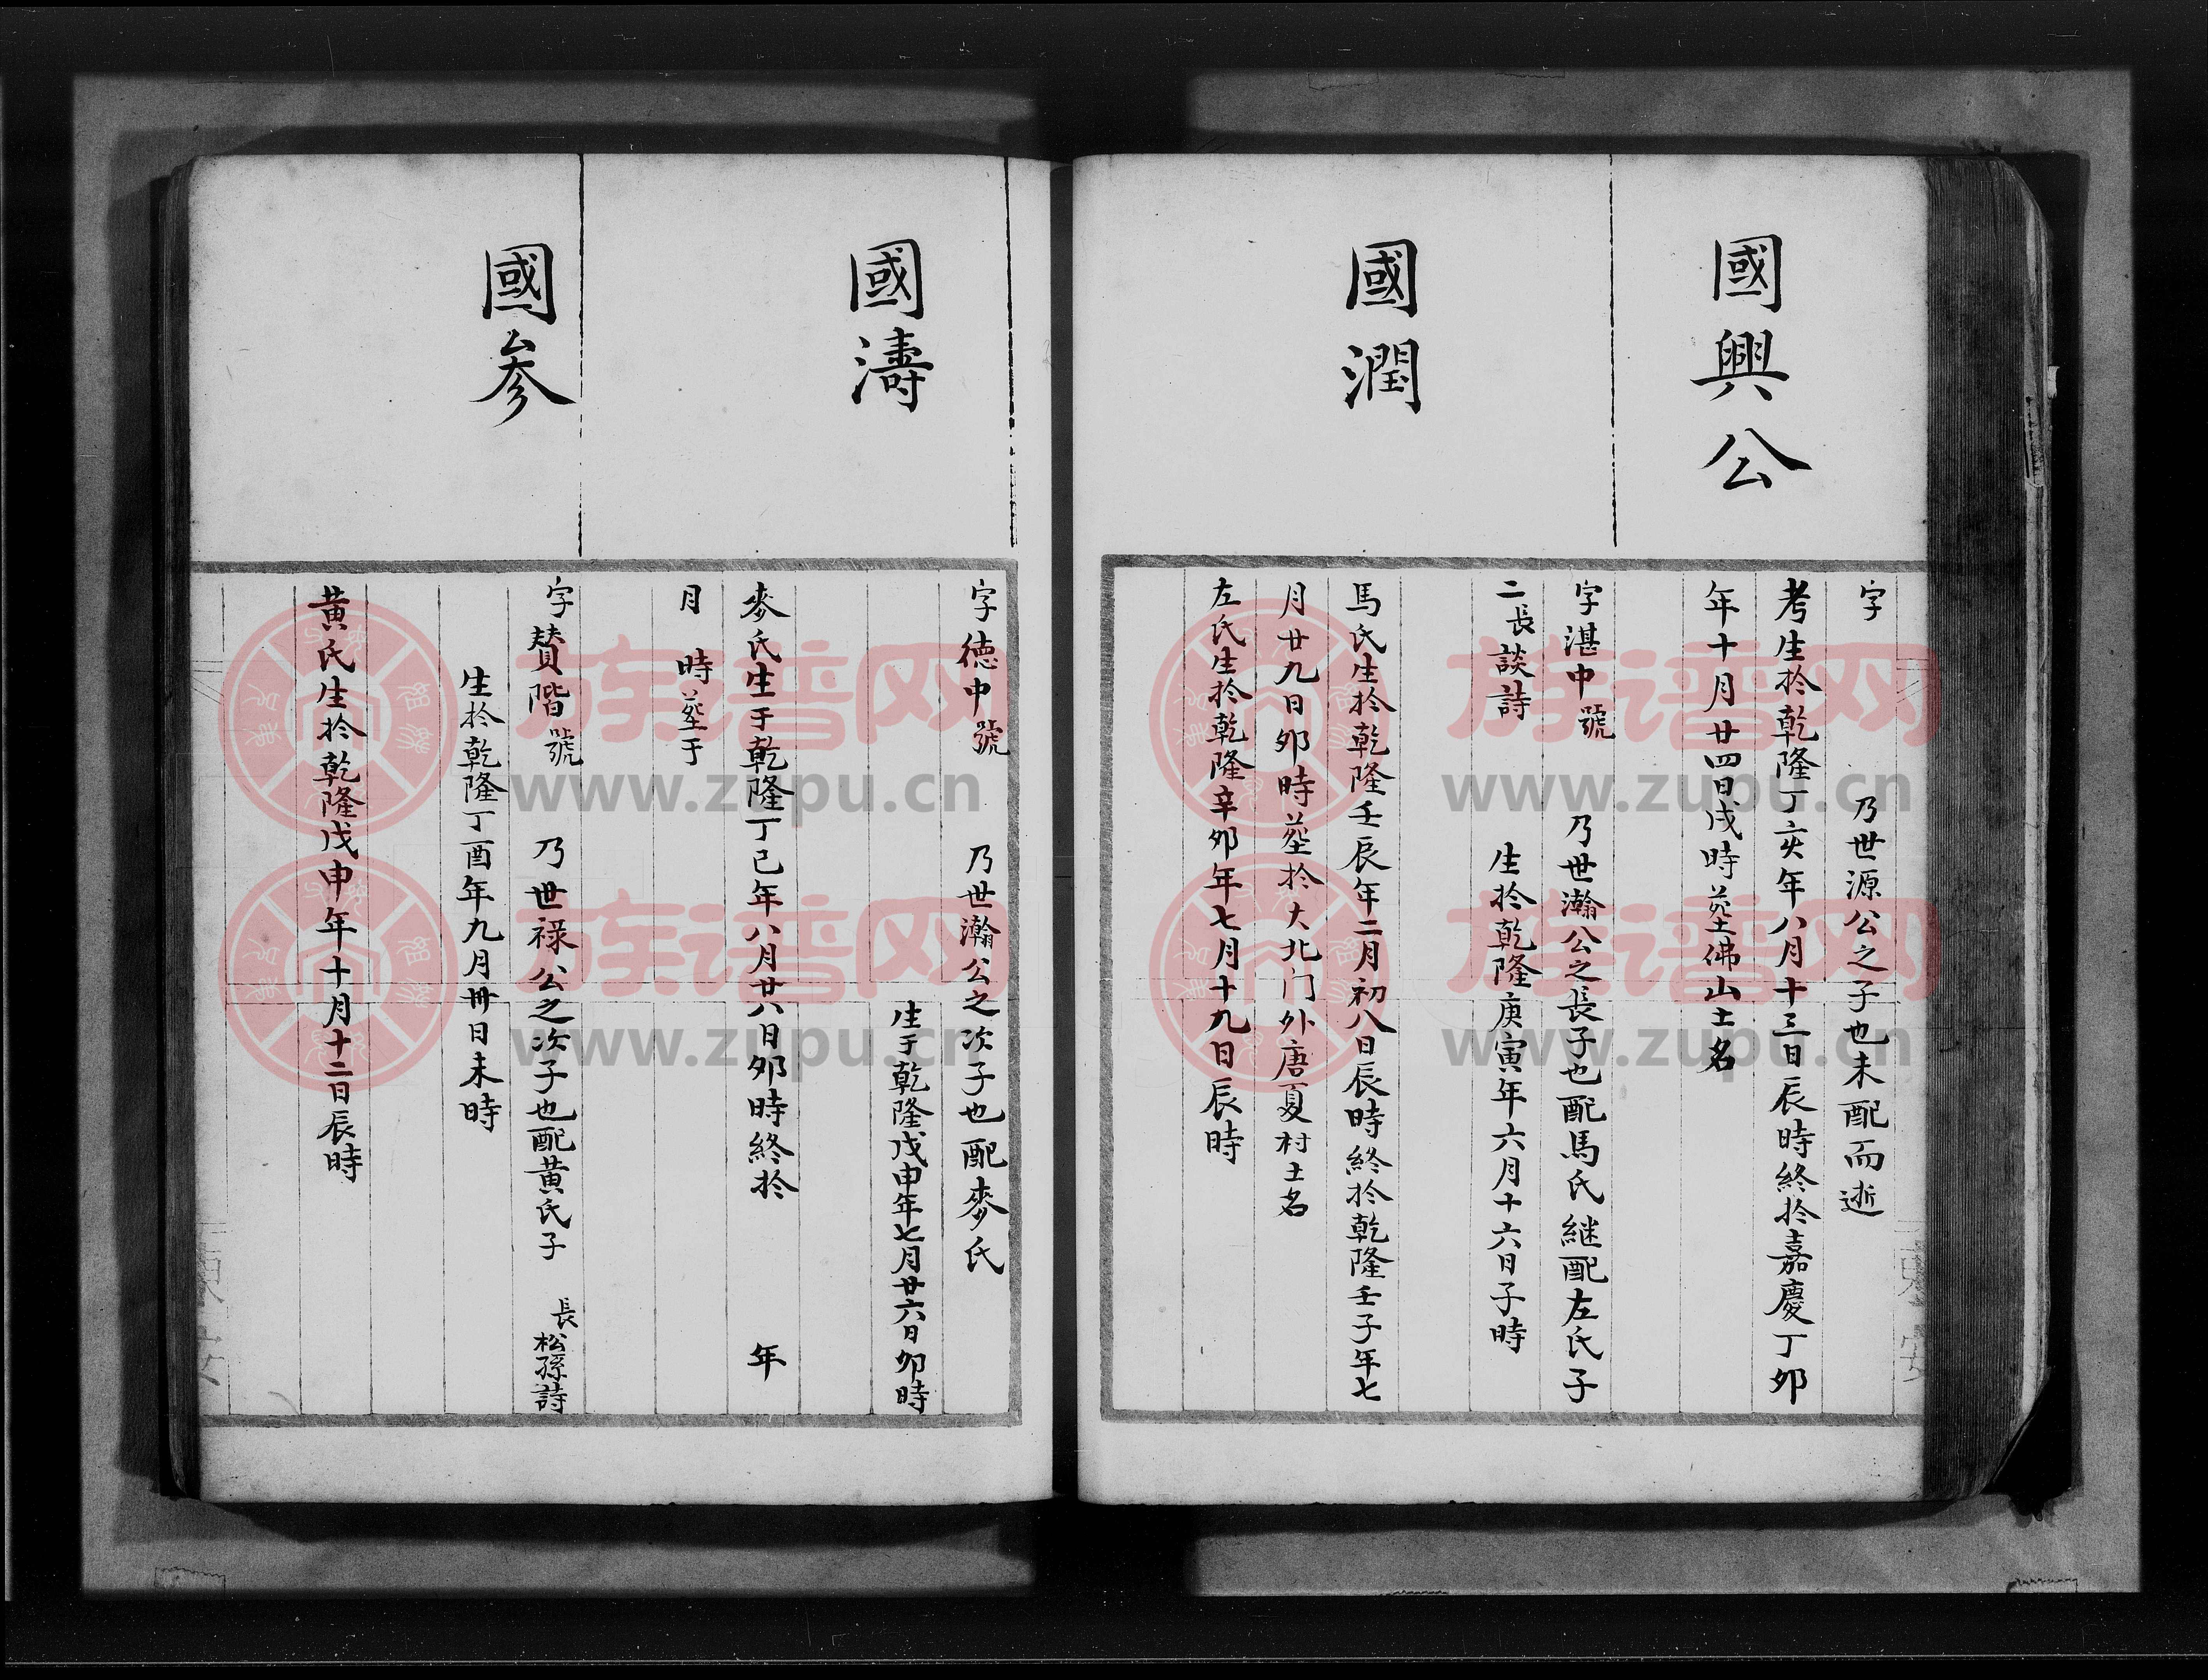 國興公
字　乃世源公之子也未配而逝
考生於乾隆丁亥年八月十三日辰時終於嘉慶丁卯
年十月廿四日戌時塟佛山土名
國潤
字湛中號　乃世瀚公之長子也配馬氏継配左氏子
二長談詩　生於乾隆庚寅年六月十六日子時
馬氏生於乾隆壬辰年二月初八日辰時終於乾隆壬子年七
月廿九日卯時塟於大北门外唐夏村土名
左氏生於乾隆辛卯年七月十九日辰時
國濤
字德中號　乃世瀚公之次子也配麥氏
生于乾隆戊申年七月廿六日卯時
麥氏生于乾隆丁已年八月廿八日卯時終於　年
月　時塟于
國参
字賛階號　乃世禄公之次子也配黄氏子　長松孫詩
生於乾隆丁酉年九月卅日未時
黄氏生於乾隆戊申年十月十二日辰時
族谱网
www.zupu.cn
族谱网
www.zupu.cn
族谱网
www.zupu.cn
族谱网
www.zupu.cn